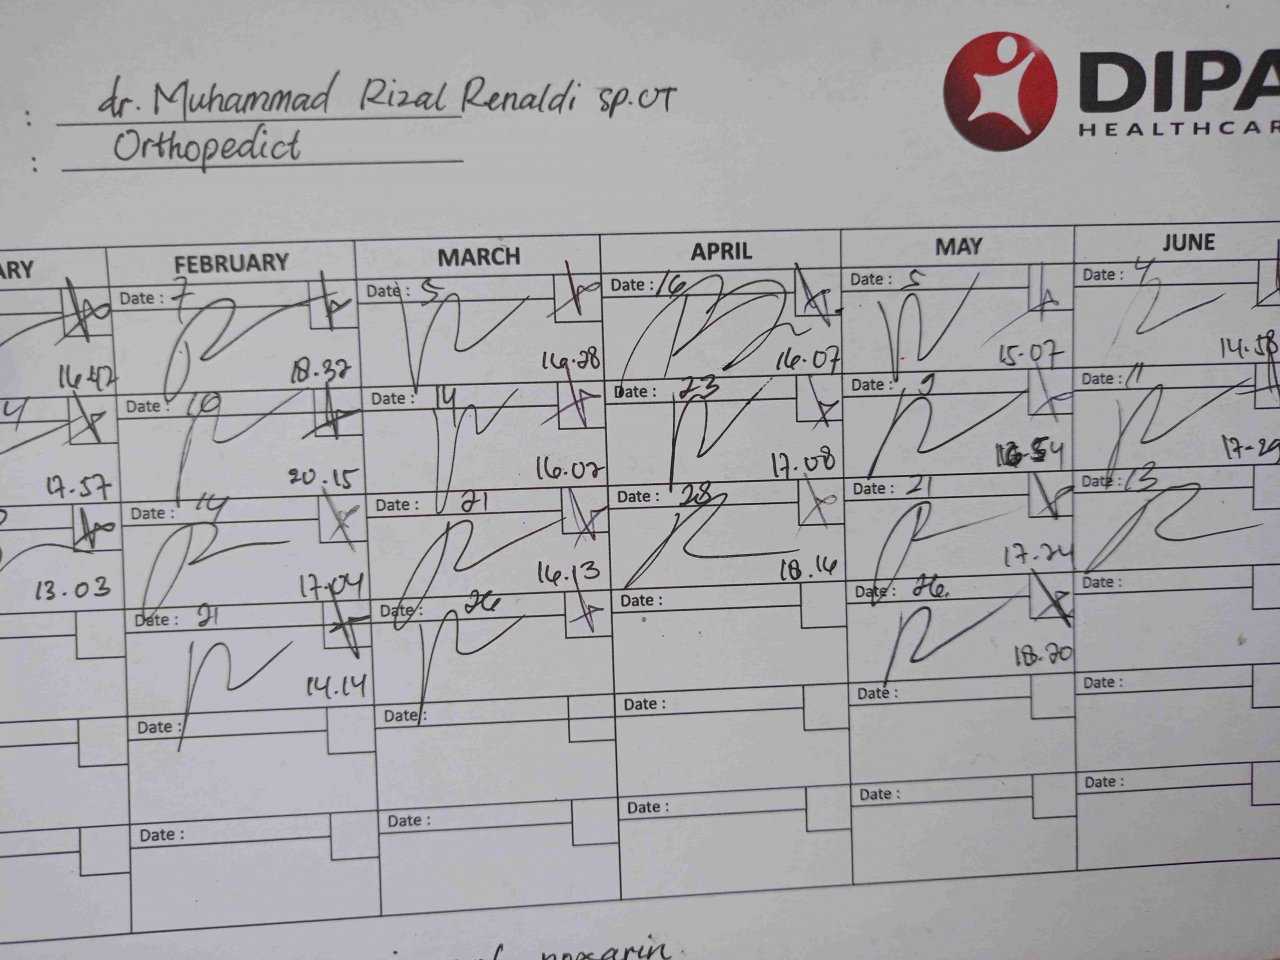 : dr. Muhammad Rizal Renaldi sp.OT
: Orthopedict
DIPA
HEALTHCAR
ARY FEBRUARY MARCH APRIL MAY JUNE
Date : 7 Date : 5 Date : 16 Date : 5 Date : 4
16.42 18.32 16.28 16.07 15.07 14.58
4 Date : 10 Date : 14 Date : 23 Date : 9 Date : 11
17.57 20.15 16.02 17.08 17-29
Date : 14 Date : 21 Date : 28 Date : 21 Date : 13
13.03 17.04 16.13 18.16 17.24
Date : 21 Date : 26 Date : Date : 26. Date :
14.14 18.20
Date : Date : Date : Date : Date :
Date : Date : Date : Date : Date :